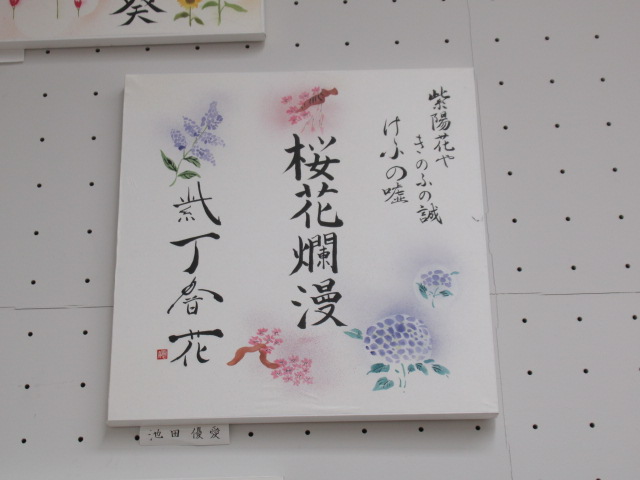 葵
紫陽花や
きのふの誠
けふの嘘
桜花爛漫
紫丁香花
池田優愛